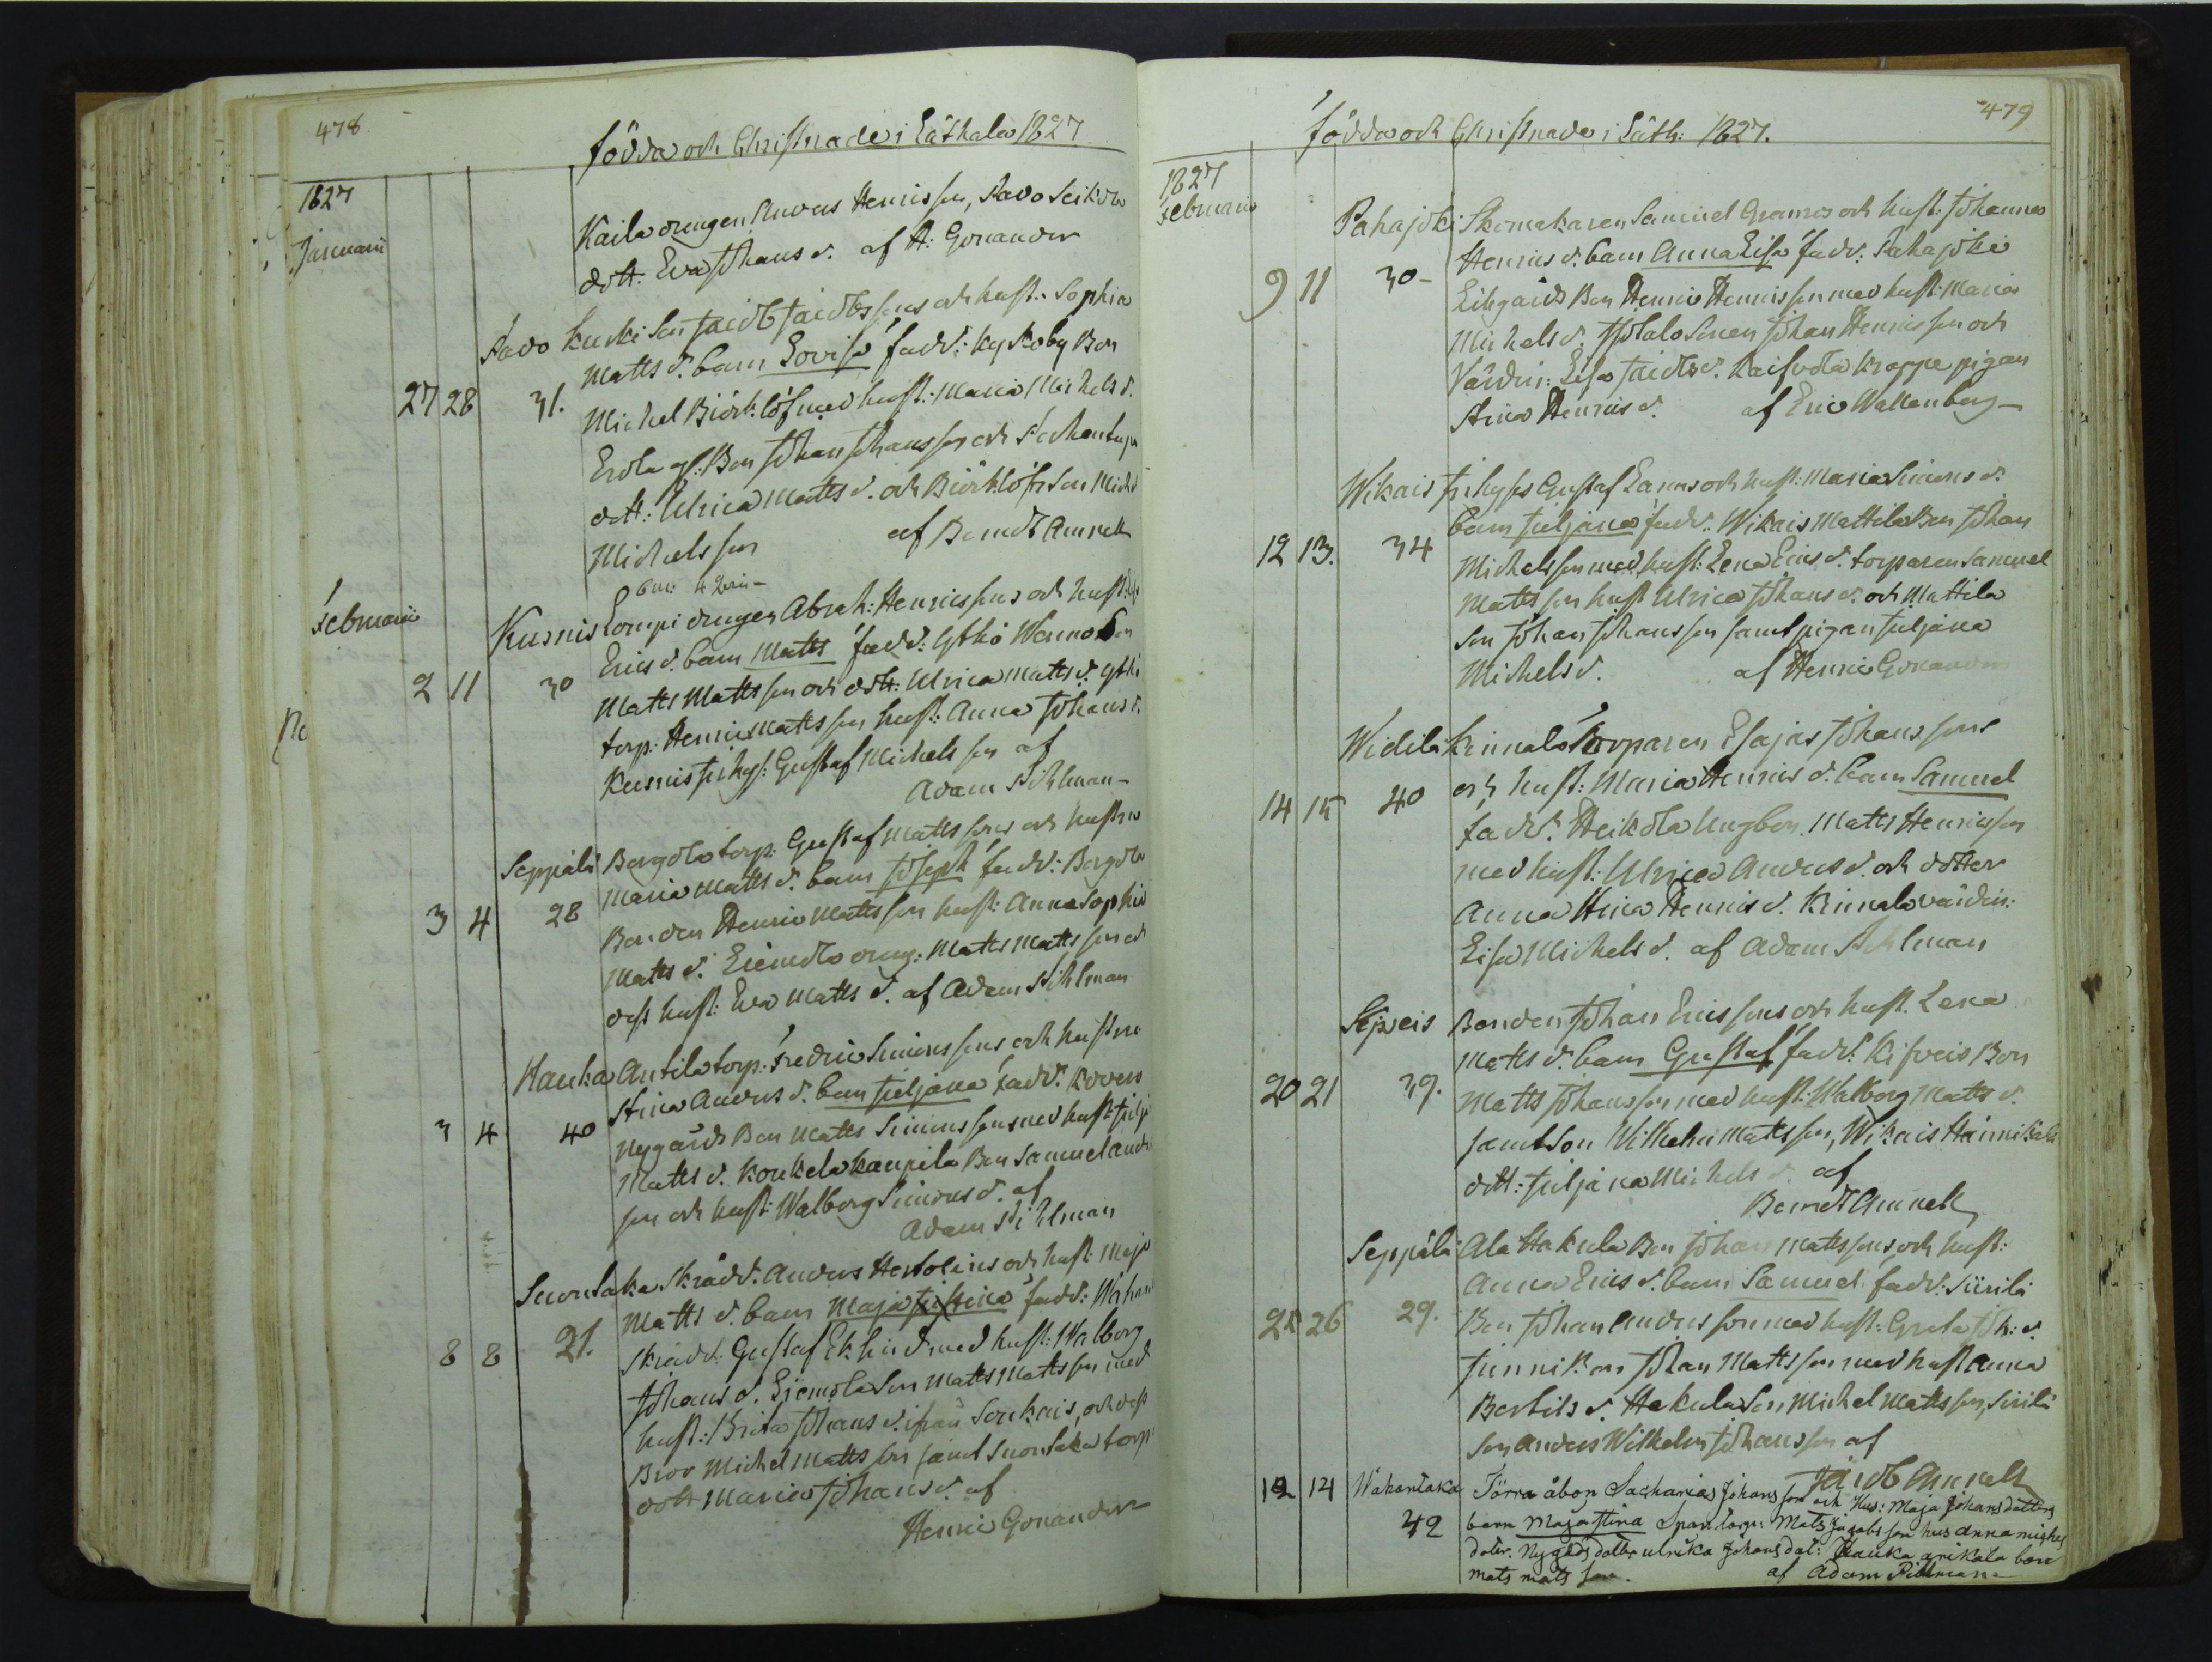 478
födda och Christnade i Läthala 1827
1827
Januarii
Kaila drengen Anders Henrics son, Savo Seikola
dott. Eva Johans d. af H: Gonander
Savo Kuski Son Jacob Jacobssons och hust. Sophia
Matts d. barn Lovisa fadd: Kyrkoby Bon
27 28 31. Michel Biörklöf med hust: Maria Michels d.
Erola gl: Bon Johan Johansson och
dott: Ulrica Matts d. och Biörklöfs Son Michel
Michelsson af Berndt Amnell
Februarii
Kusnis Lempi drengen Abrah: Henricssons och hust:
Erics d. barn Matts fadd: Gtkö Wanno Son
2 11 30 Matts Mattsson och dott: Ulrica Matts d.
torp: Henric Mattsson hust: Anna Johans d.
Kusnis Gustaf Michelsson af
Adam Pihlman
Seppälä Bergola torp: Gustaf Mattssons och hustru
Maria Matts d. barn Joseph fadd: Bergola
3 4 28 Bonden Henric Mattsson hust: Anna Sophia
Matts d. dreng: Matts Mattsson och
dess hust: Eva Matts d. af Adam Pihlman
Hauka Antila torp: Fredric Simonssons och hustru
Stina Anders d. barn Juljana fadd:
3 4 40 Nygårds Bon Matts Simonsson med hust:
Matts d. Konkela Kaupila Bon Samuel Anders
son och hust: Walborg Simons d. af
Adam Pihlman
Suontaka Skrädd: Anders Hertolins och hust: Maja
Matts d. barn Maja Justina fadd:
8 8 21. Skrädd: Gustaf Eklund med hust: Walborg
Johans d. Son Matts Mattsson med
hust: Brita Johans d. ifrån Soukais, och dess
Bror Michel Mattsson samt Suontaka torp:
dott Maria Johans d. af
Henric Gonander
479
födda och Christnade i Läth: 1827.
1827
Februarii
Pahajoki Skomakaren Samuel Granros och hust: Johanna
Henrics d. barn Anna Lisa fadd: Pahajoki
9 11 30 - Lillgårds Bon Henric Henricsson med hust: Maria
Michels d. Sonen Johan Henricsson och
Värdin: Lisa Jacobs d. Krappe pigan
Stina Henrics d. af Eric Wallenberg
Wikais Gustaf och hust: Maria Simons d.
barn Juljana fadd: Wikais Mattila Bon Johan
12 13. 34 Michelsson med hust: Lena Erics d. torparen Samuel
Mattsson hust Ulrica Johans d. och Mattila
Son Johan Johansson samt pigan Juljana
Michels d. af Henric Gonander
Widilä Kinnala torparen Esajas Johanssons
och hust: Maria Henrics d. barn Samuel
14 15 40 fadd: Heikola Ungbon Matts Henricsson
med hust: Ulrica Anders d. och dotter
Anna Stina Henrics d. Kinnala värdin:
Lisa Michels d. af Adam Pihlman
Bonden Johan Ericssons och hust. Lena
Matts d. barn Gustaf fadd: Kifveis Bon
20 21 39. Matts Johansson med hust: Walborg Matts d.
samt Son Wilhelm Mattsson, Wikais
dott: Juljana Michels d. af
Berndt Amnell
Seppälä Ala Hakula Bon Johan Mattssons och hust:
Anna Erics d. barn Samuel fadd: Siirilä
25 26 29. Bon Johan Andersson med hust: Greta Joh: d.
Junni Bon Johan Mattsson med hust Anna
Bertils d. Hakula Son Michel Mattsson, Siirilä
Son Anders Wilhelm Johansson af
Jacob Amnell
12 14 Wahantaka Törra åbon Sacharias Johansson och Hus: Maja Johansdotters
42 barn Maja Stina Spar torp: Mats Jacobsson hus Anna Michels
doter. Nygårds dotter Ulrika Johans dot: Hauka Anikala bon
mats mats son. af Adam Pihlman